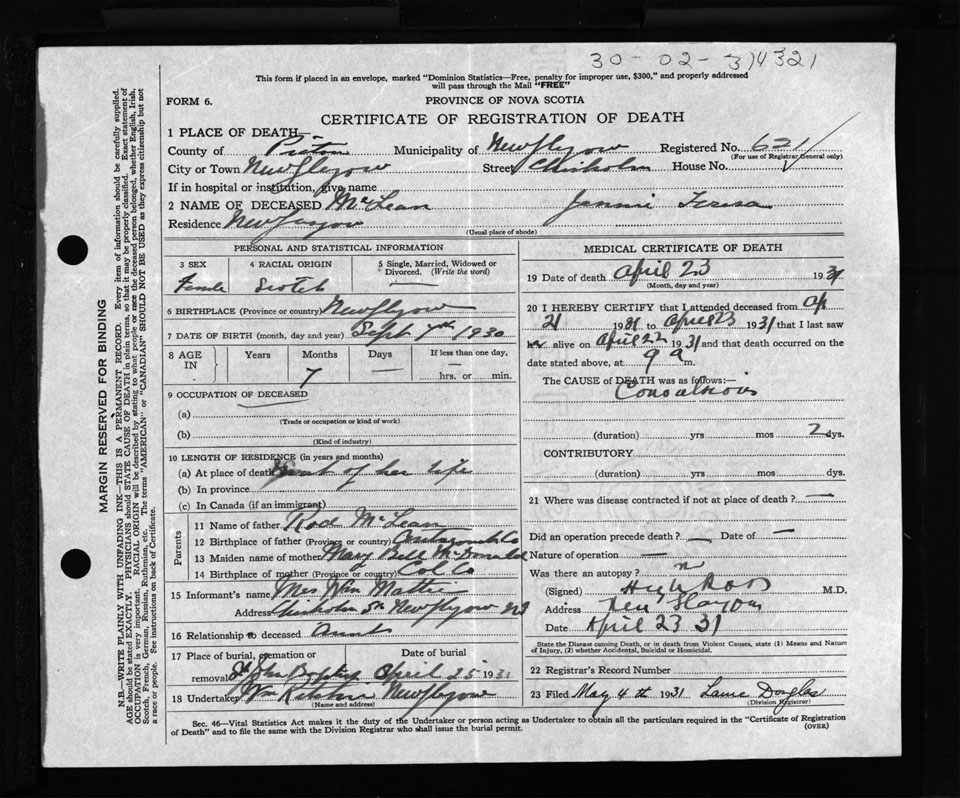 30-02-314321
This form if placed in an envelope, marked "Dominion Statistics—Free, penalty for improper use, $300," and properly addressed
will pass through the Mail "FREE"
FORM 6.
PROVINCE OF NOVA SCOTIA
CERTIFICATE OF REGISTRATION OF DEATH
1 PLACE OF DEATH
County of Pictou Municipality of New Glasgow Registered No. 621
(For use of Registrar General only)
City or Town New Glasgow Street Chisholm House No.
If in hospital or institution, give name
2 NAME OF DECEASED McLean Jennie Teresa
Residence New Glasgow
(Usual place of abode)
PERSONAL AND STATISTICAL INFORMATION
3 SEX
4 RACIAL ORIGIN
5 Single, Married, Widowed or Divorced. (Write the word)
Female Scotch —
6 BIRTHPLACE (Province or country) New Glasgow
7 DATE OF BIRTH (month, day and year) Sept 7th 1930
8 AGE IN
Years Months Days If less than one day,
7 — —
hrs. or min.
9 OCCUPATION OF DECEASED
(a)
(Trade or occupation or kind of work)
(b)
(Kind of industry)
10 LENGTH OF RESIDENCE (in years and months)
(a) At place of death of her life
(b) In province
(c) In Canada (if an immigrant)
Parents
11 Name of father Rod McLean
12 Birthplace of father (Province or country) Antigonish Co
13 Maiden name of mother Mary Bell McDonald
14 Birthplace of mother (Province or country) Col Co
15 Informant's name Mrs Wm
Address Chisholm St New Glasgow NS
16 Relationship to deceased Aunt
17 Place of burial, cremation or removal
Date of burial
St John Baptist April 25 1931
18 Undertaker Wm New Glasgow
(Name and address)
MEDICAL CERTIFICATE OF DEATH
19 Date of death April 23 1931
(Month, day and year)
20 I HEREBY CERTIFY that I attended deceased from Ap
21 1931 to April 23 1931 that I last saw
her alive on April 22 1931 and that death occurred on the
date stated above, at 9 a m.
The CAUSE of DEATH was as follows:—
Convulsions
(duration) yrs mos 2 dys.
CONTRIBUTORY
(duration) yrs mos dys.
21 Where was disease contracted if not at place of death? —
Did an operation precede death? — Date of —
Nature of operation —
Was there an autopsy? n
(Signed) M.D.
Address New Glasgow
Date April 23 31
State the Disease causing Death, or in death from Violent Causes, state (1) Means and Nature of Injury, (2) whether Accidental, Suicidal or Homicidal.
22 Registrar's Record Number
23 Filed May 4th 1931 Douglas
(Division Registrar)
Sec. 46—Vital Statistics Act makes it the duty of the Undertaker or person acting as Undertaker to obtain all the particulars required in the "Certificate of Registration
of Death" and to file the same with the Division Registrar who shall issue the burial permit.
(OVER)
MARGIN RESERVED FOR BINDING
N.B.—WRITE PLAINLY WITH UNFADING INK—THIS IS A PERMANENT RECORD. Every item of information should be carefully supplied.
AGE should be stated EXACTLY. PHYSICIANS should STATE CAUSE OF DEATH in plain terms, so that it may be properly classified. Exact statement of
OCCUPATION is very important. RACIAL ORIGIN will be described by stating to what people or race the deceased person belonged, whether English, Irish,
Scotch, French, German, Russian, Ruthenian, etc. The terms "AMERICAN" or "CANADIAN" SHOULD NOT BE USED as they express citizenship but not
a race or people. See instructions on back of Certificate.